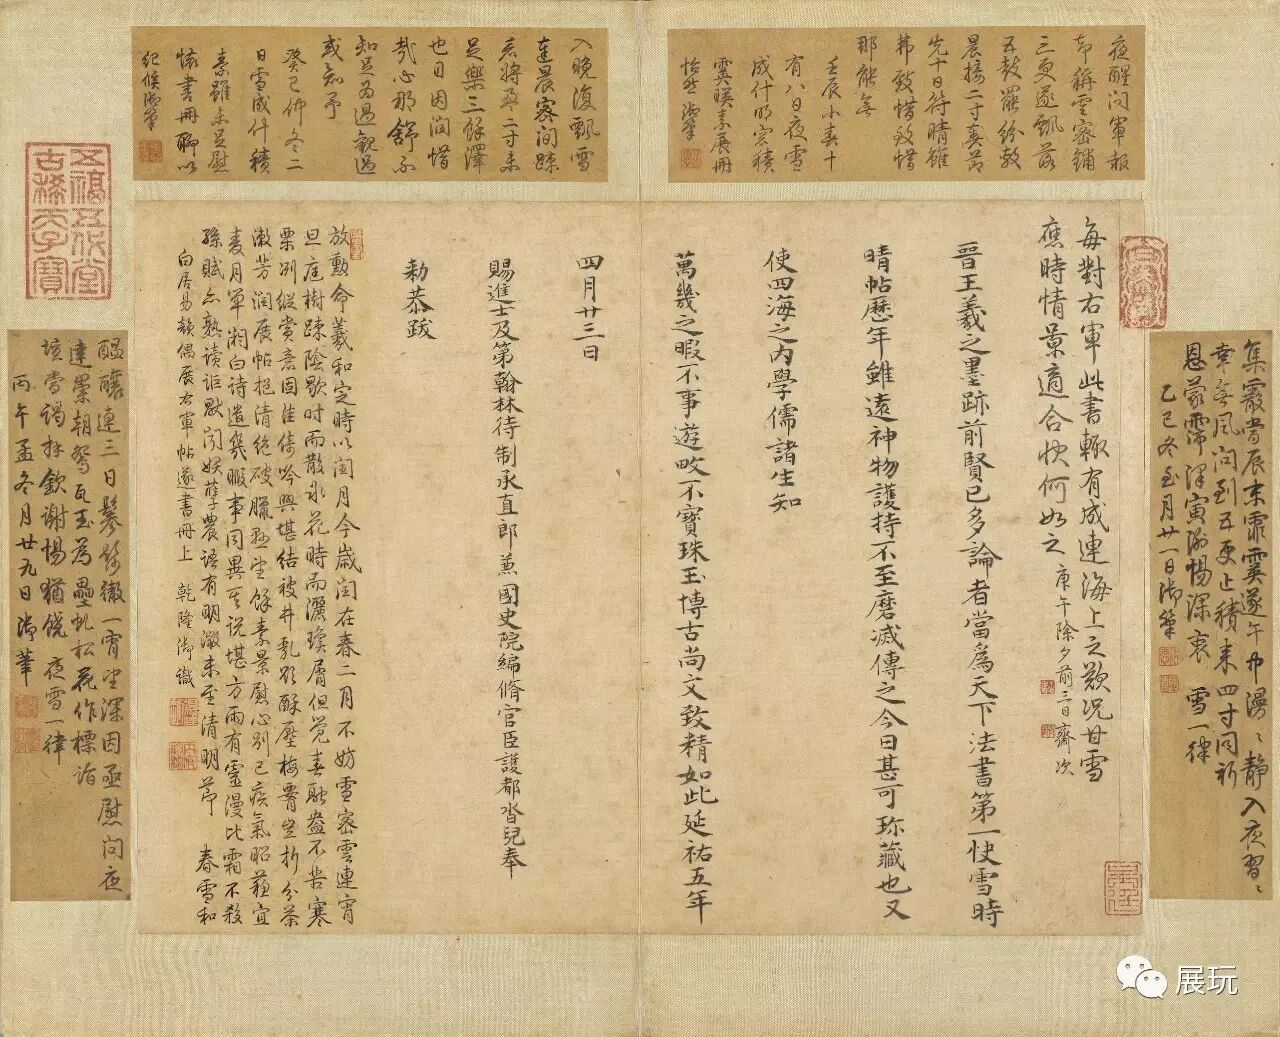 夜醒問軍報
却稱雲密鋪
三更遂飄落
五鼓罷紛敷
晨接二寸喜節
先十日符晴雖
弗致惜致惜
那能無
壬辰小春十
有八日夜雪
成什明窓積
霙暎素展冊
怡然御筆
入晚復飄雪
達晨密間踈
若將盈二寸未
足樂三餘澤
也因因潤惜
哉心那舒不
知並為過觀過
或知予
癸巳仲冬二
日雪成什積
素雖未足慰
懷書冊聊以
紀候御筆
集霰當辰末霏霙遂午中漫〻静入夜習〻
幸無風問到五更止積來四寸同祈
恩蒙霈澤寅緬惕深衷 雪一律
乙巳冬至月廿一日御筆
每對右軍此書輒有成連海上之歎況甘雪
應時情景適合快何如之 庚午除夕前三日齋次
晋王羲之墨跡前賢已多論者當為天下法書第一快雪時
晴帖歷年雖遠神物護持不至磨滅傳之今日甚可珎藏也又
使四海之内學儒諸生知
萬幾之暇不事遊畋不寶珠玉博古尚文致精如此延祐五年
四月廿三日
賜進士及第翰林待制承直郎兼國史院編脩官臣護都沓兒奉
勑恭跋
放勳命羲和定時以閏月今歲閏在春二月不妨雪密雲連宵
旦庭樹踈陰歇时而散氷花時而灑瓊屑但覺春融盎不苦寒
栗冽縱賞意固佳倚吟興堪結被井乳頻酥壓梅霽空折分茶
漱芳潤展帖挹清絶破臘慰望餘素景慰心別已疾氣昭蘓宜
麦月單湘白诗遣幾暇事同異其说堪方兩有靈漫比霜不殺
孫賦忘熟读詎默聞妖孽農语有明徵未至清明節 春雪和
白居易韻偶展右軍帖遂書冊上 乾隆御識
醖釀連三日鬖髿徹一宵望深因亟慰問夜
達景朝鴛瓦玉為壘虬松花作標詣
壇雪謁拜欽谢惕猶饒 夜雪一律
丙午孟冬月廿九日御筆
五福五代堂
古稀天子寶
展玩